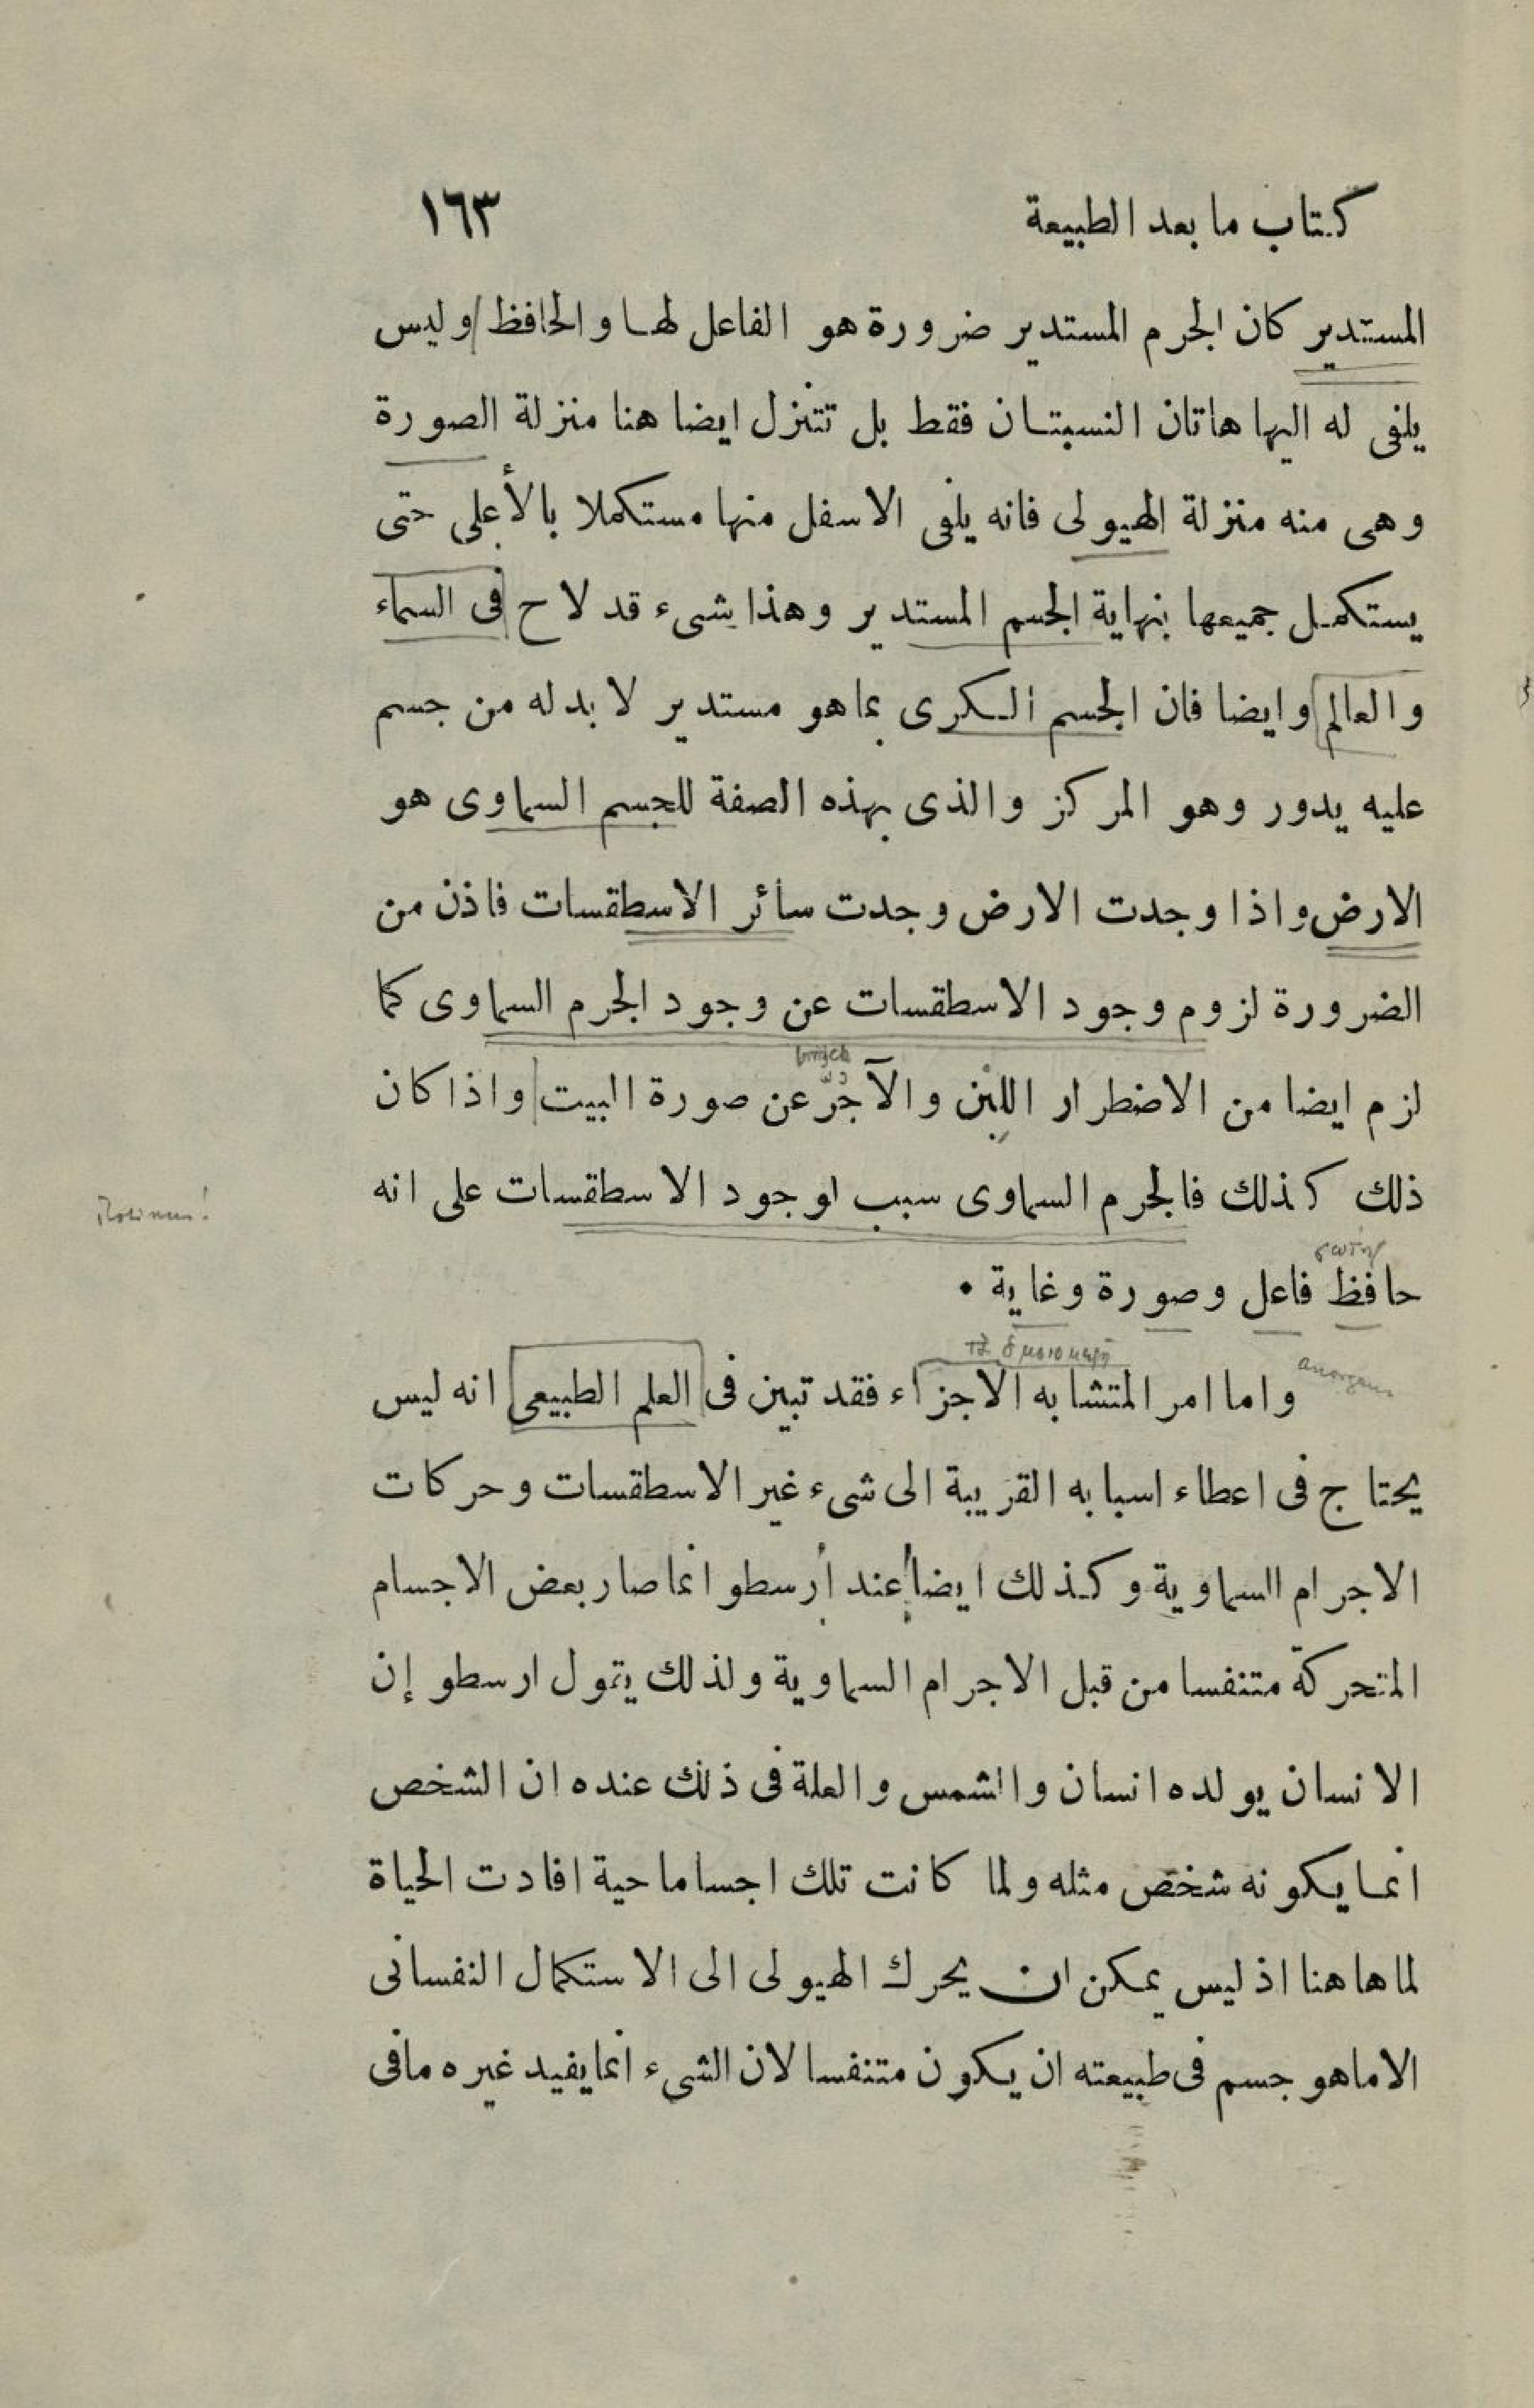 كتاب ما بعد الطبيعة ١٦٣
المستدير كان الجرم المستدير ضرورة هو الفاعل لها والحافظ وليس
يلفى له اليها هاتان النسبتان فقط بل تتنزل ايضا هنا منزلة الصورة
وهى منه منزلة الهيولى فانه يلفى الاسفل منها مستكملا بالأعلى حتى
يستكمل جميعها بنهاية الجسم المستدير وهذا شىء قد لاح فى السماء
والعالم وايضا فان الجسم الكرى بما هو مستدير لا بد له من جسم
عليه يدور وهو المركز والذى بهذه الصفة للجسم السماوى هو
الارض واذا وجدت الارض وجدت سائر الاسطقسات فاذن من
الضرورة لزوم وجود الاسطقسات عن وجود الجرم السماوى كما
لزم ايضا من الاضطرار اللبن والآجرّ عن صورة البيت واذا كان
ذلك كذلك فالجرم السماوى سبب لوجود الاسطقسات على انه
حافظ فاعل وصورة وغاية •
τὰ ὁμοιομερῆ
anorgan.
واما امر المتشابه الاجزاء فقد تبين فى العلم الطبيعى انه ليس
يحتاج فى اعطاء اسبابه القريبة الى شىء غير الاسطقسات وحركات
الاجرام السماوية وكذلك ايضا عند أرسطو انما صار بعض الاجسام
المتحركة متنفسا من قبل الاجرام السماوية ولذلك يقول ارسطو إن
الانسان يولده انسان والشمس والعلة فى ذلك عنده ان الشخص
انما يكونه شخص مثله ولما كانت تلك اجساما حية افادت الحياة
لما هاهنا اذ ليس يمكن ان يحرك الهيولى الى الاستكمال النفسانى
الا ما هو جسم فى طبيعته ان يكون متنفسا لان الشىء انما يفيد غيره ما فى